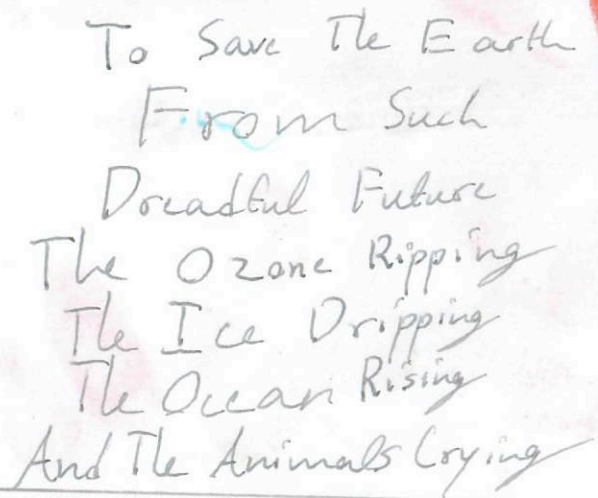 To Save The Earth
From Such
Dreadful Future
The Ozone Ripping
The Ice Dripping
The Ocean Rising
And The Animals Crying